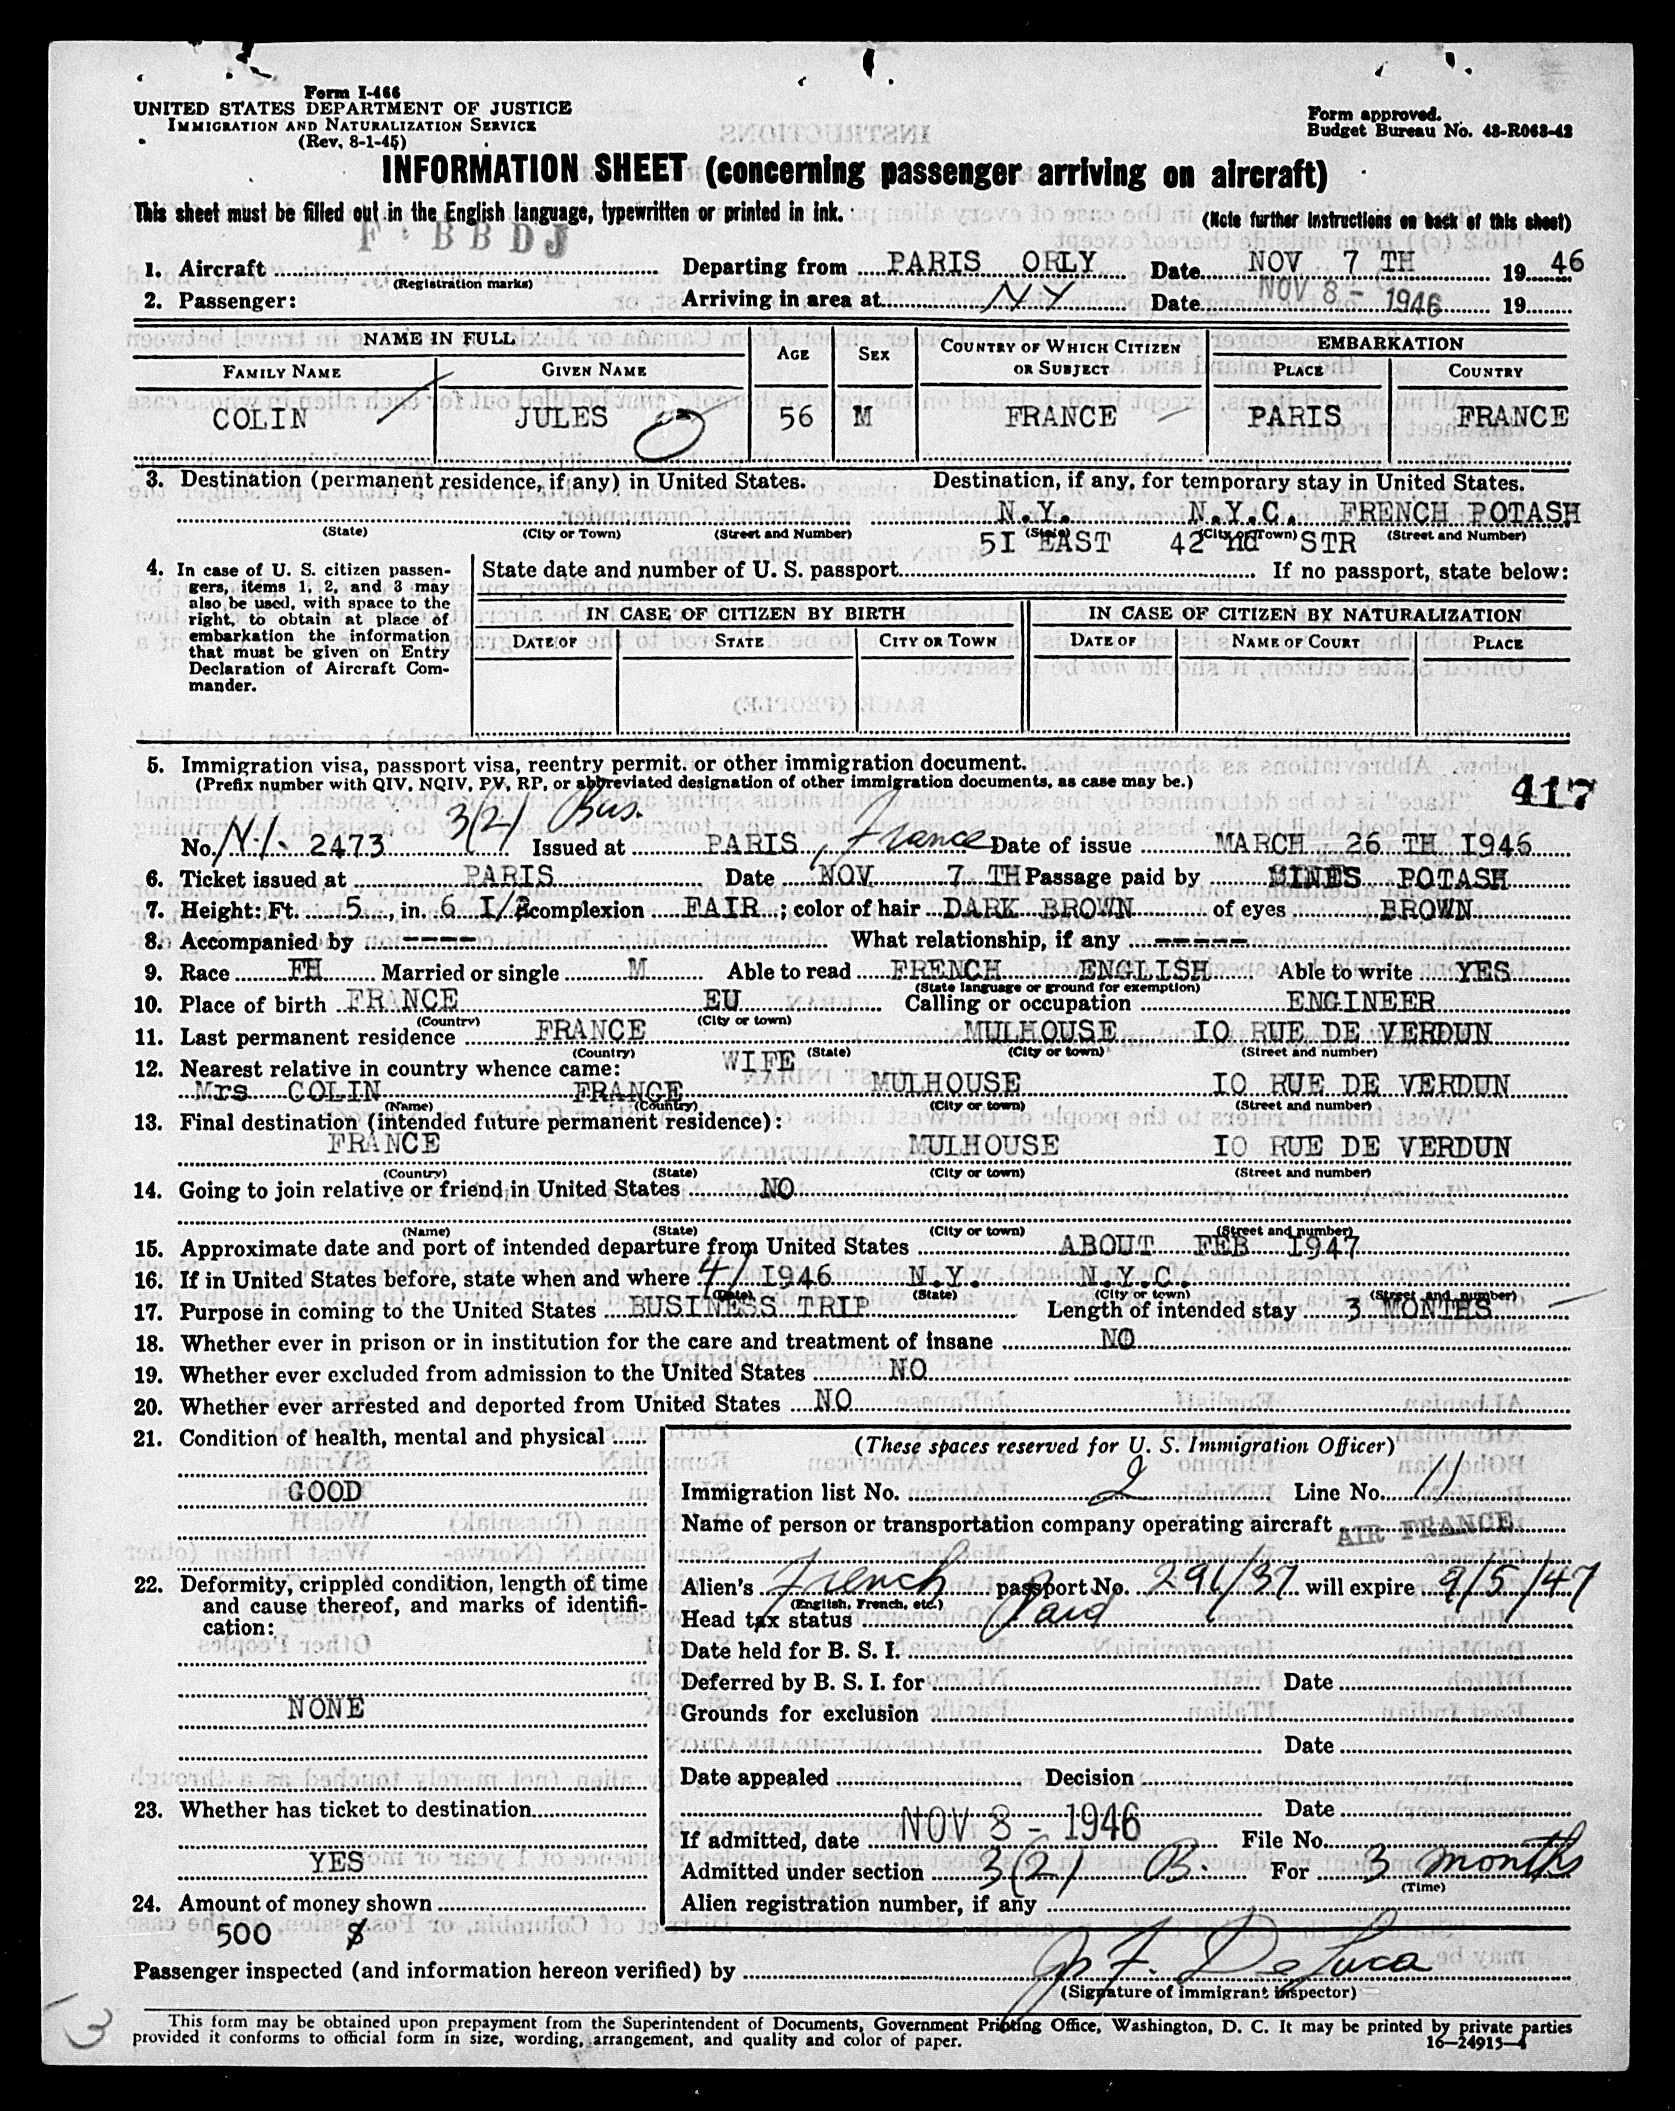 Form I-466
UNITED STATES DEPARTMENT OF JUSTICE
IMMIGRATION AND NATURALIZATION SERVICE
(Rev. 8-1-45)
Form approved.
Budget Bureau No. 43-R063-42
INFORMATION SHEET (concerning passenger arriving on aircraft)
This sheet must be filled out in the English language, typewritten or printed in ink.
(Note further instructions on back of this sheet)
F-BBDJ
1. Aircraft (Registration marks) Departing from PARIS ORLY Date NOV 7 TH 1946
2. Passenger: Arriving in area at NY Date NOV 8 - 1946 19
NAME IN FULL AGE SEX COUNTRY OF WHICH CITIZEN OR SUBJECT EMBARKATION
FAMILY NAME GIVEN NAME PLACE COUNTRY
COLIN JULES 56 M FRANCE PARIS FRANCE
3. Destination (permanent residence, if any) in United States. Destination, if any, for temporary stay in United States.
N.Y. N.Y.C. FRENCH POTASH
(State) (City or Town) (Street and Number) (State) (City or Town) (Street and Number)
51 EAST 42 nd STR
4. In case of U. S. citizen passengers, items 1, 2, and 3 may also be used, with space to the right, to obtain at place of embarkation the information that must be given on Entry Declaration of Aircraft Commander.
State date and number of U. S. passport If no passport, state below:
IN CASE OF CITIZEN BY BIRTH IN CASE OF CITIZEN BY NATURALIZATION
DATE OF STATE CITY OR TOWN DATE OF NAME OF COURT PLACE
5. Immigration visa, passport visa, reentry permit, or other immigration document.
(Prefix number with QIV, NQIV, PV, RP, or abbreviated designation of other immigration documents, as case may be.)
417
3(2) Bus.
No. N.I. 2473 Issued at PARIS, France Date of issue MARCH 26 TH 1946
6. Ticket issued at PARIS Date NOV 7 TH Passage paid by MINES POTASH
7. Height: Ft. 5, in. 6 1/2; complexion FAIR; color of hair DARK BROWN of eyes BROWN
8. Accompanied by ---- What relationship, if any -----
9. Race FH Married or single M Able to read FRENCH ENGLISH Able to write YES
(State language or ground for exemption)
10. Place of birth FRANCE EU Calling or occupation ENGINEER
(Country) (City or town)
11. Last permanent residence FRANCE MULHOUSE 10 RUE DE VERDUN
(Country) (State) (City or town) (Street and number)
12. Nearest relative in country whence came: WIFE
Mrs COLIN FRANCE MULHOUSE 10 RUE DE VERDUN
(Name) (Country) (City or town) (Street and number)
13. Final destination (intended future permanent residence):
FRANCE MULHOUSE 10 RUE DE VERDUN
(Country) (State) (City or town) (Street and number)
14. Going to join relative or friend in United States NO
(Name) (State) (City or town) (Street and number)
15. Approximate date and port of intended departure from United States ABOUT FEB 1947
16. If in United States before, state when and where 4/ 1946 N.Y. N.Y.C.
(Date) (State) (City or town) (Street and number)
17. Purpose in coming to the United States BUSINESS TRIP Length of intended stay 3 MONTHS
18. Whether ever in prison or in institution for the care and treatment of insane NO
19. Whether ever excluded from admission to the United States NO
20. Whether ever arrested and deported from United States NO
21. Condition of health, mental and physical
GOOD
22. Deformity, crippled condition, length of time and cause thereof, and marks of identification:
NONE
23. Whether has ticket to destination
YES
24. Amount of money shown
500 $
(These spaces reserved for U. S. Immigration Officer)
Immigration list No. 2 Line No. 11
Name of person or transportation company operating aircraft AIR FRANCE
Alien's French passport No. 291/37 will expire 9/5/47
(English, French, etc.)
Head tax status Paid
Date held for B. S. I.
Deferred by B. S. I. for Date
Grounds for exclusion
Date
Date appealed Decision
Date
If admitted, date NOV 8 - 1946 File No.
Admitted under section 3(2) B. For 3 months
(Time)
Alien registration number, if any
Passenger inspected (and information hereon verified) by F. DeLuca
(Signature of immigrant inspector)
3
This form may be obtained upon prepayment from the Superintendent of Documents, Government Printing Office, Washington, D. C. It may be printed by private parties
provided it conforms to official form in size, wording, arrangement, and quality and color of paper.
16—24915-1